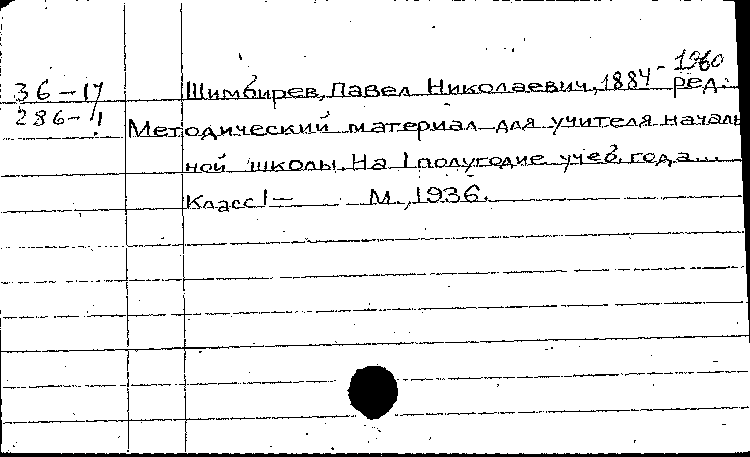 36-17 Шимбирев, Павел Николаевич, 1884-1960 ред.
286-1 Методический материал для учителя началь
ной школы. На I полугодие учеб. года...
Класс I — М., 1936.